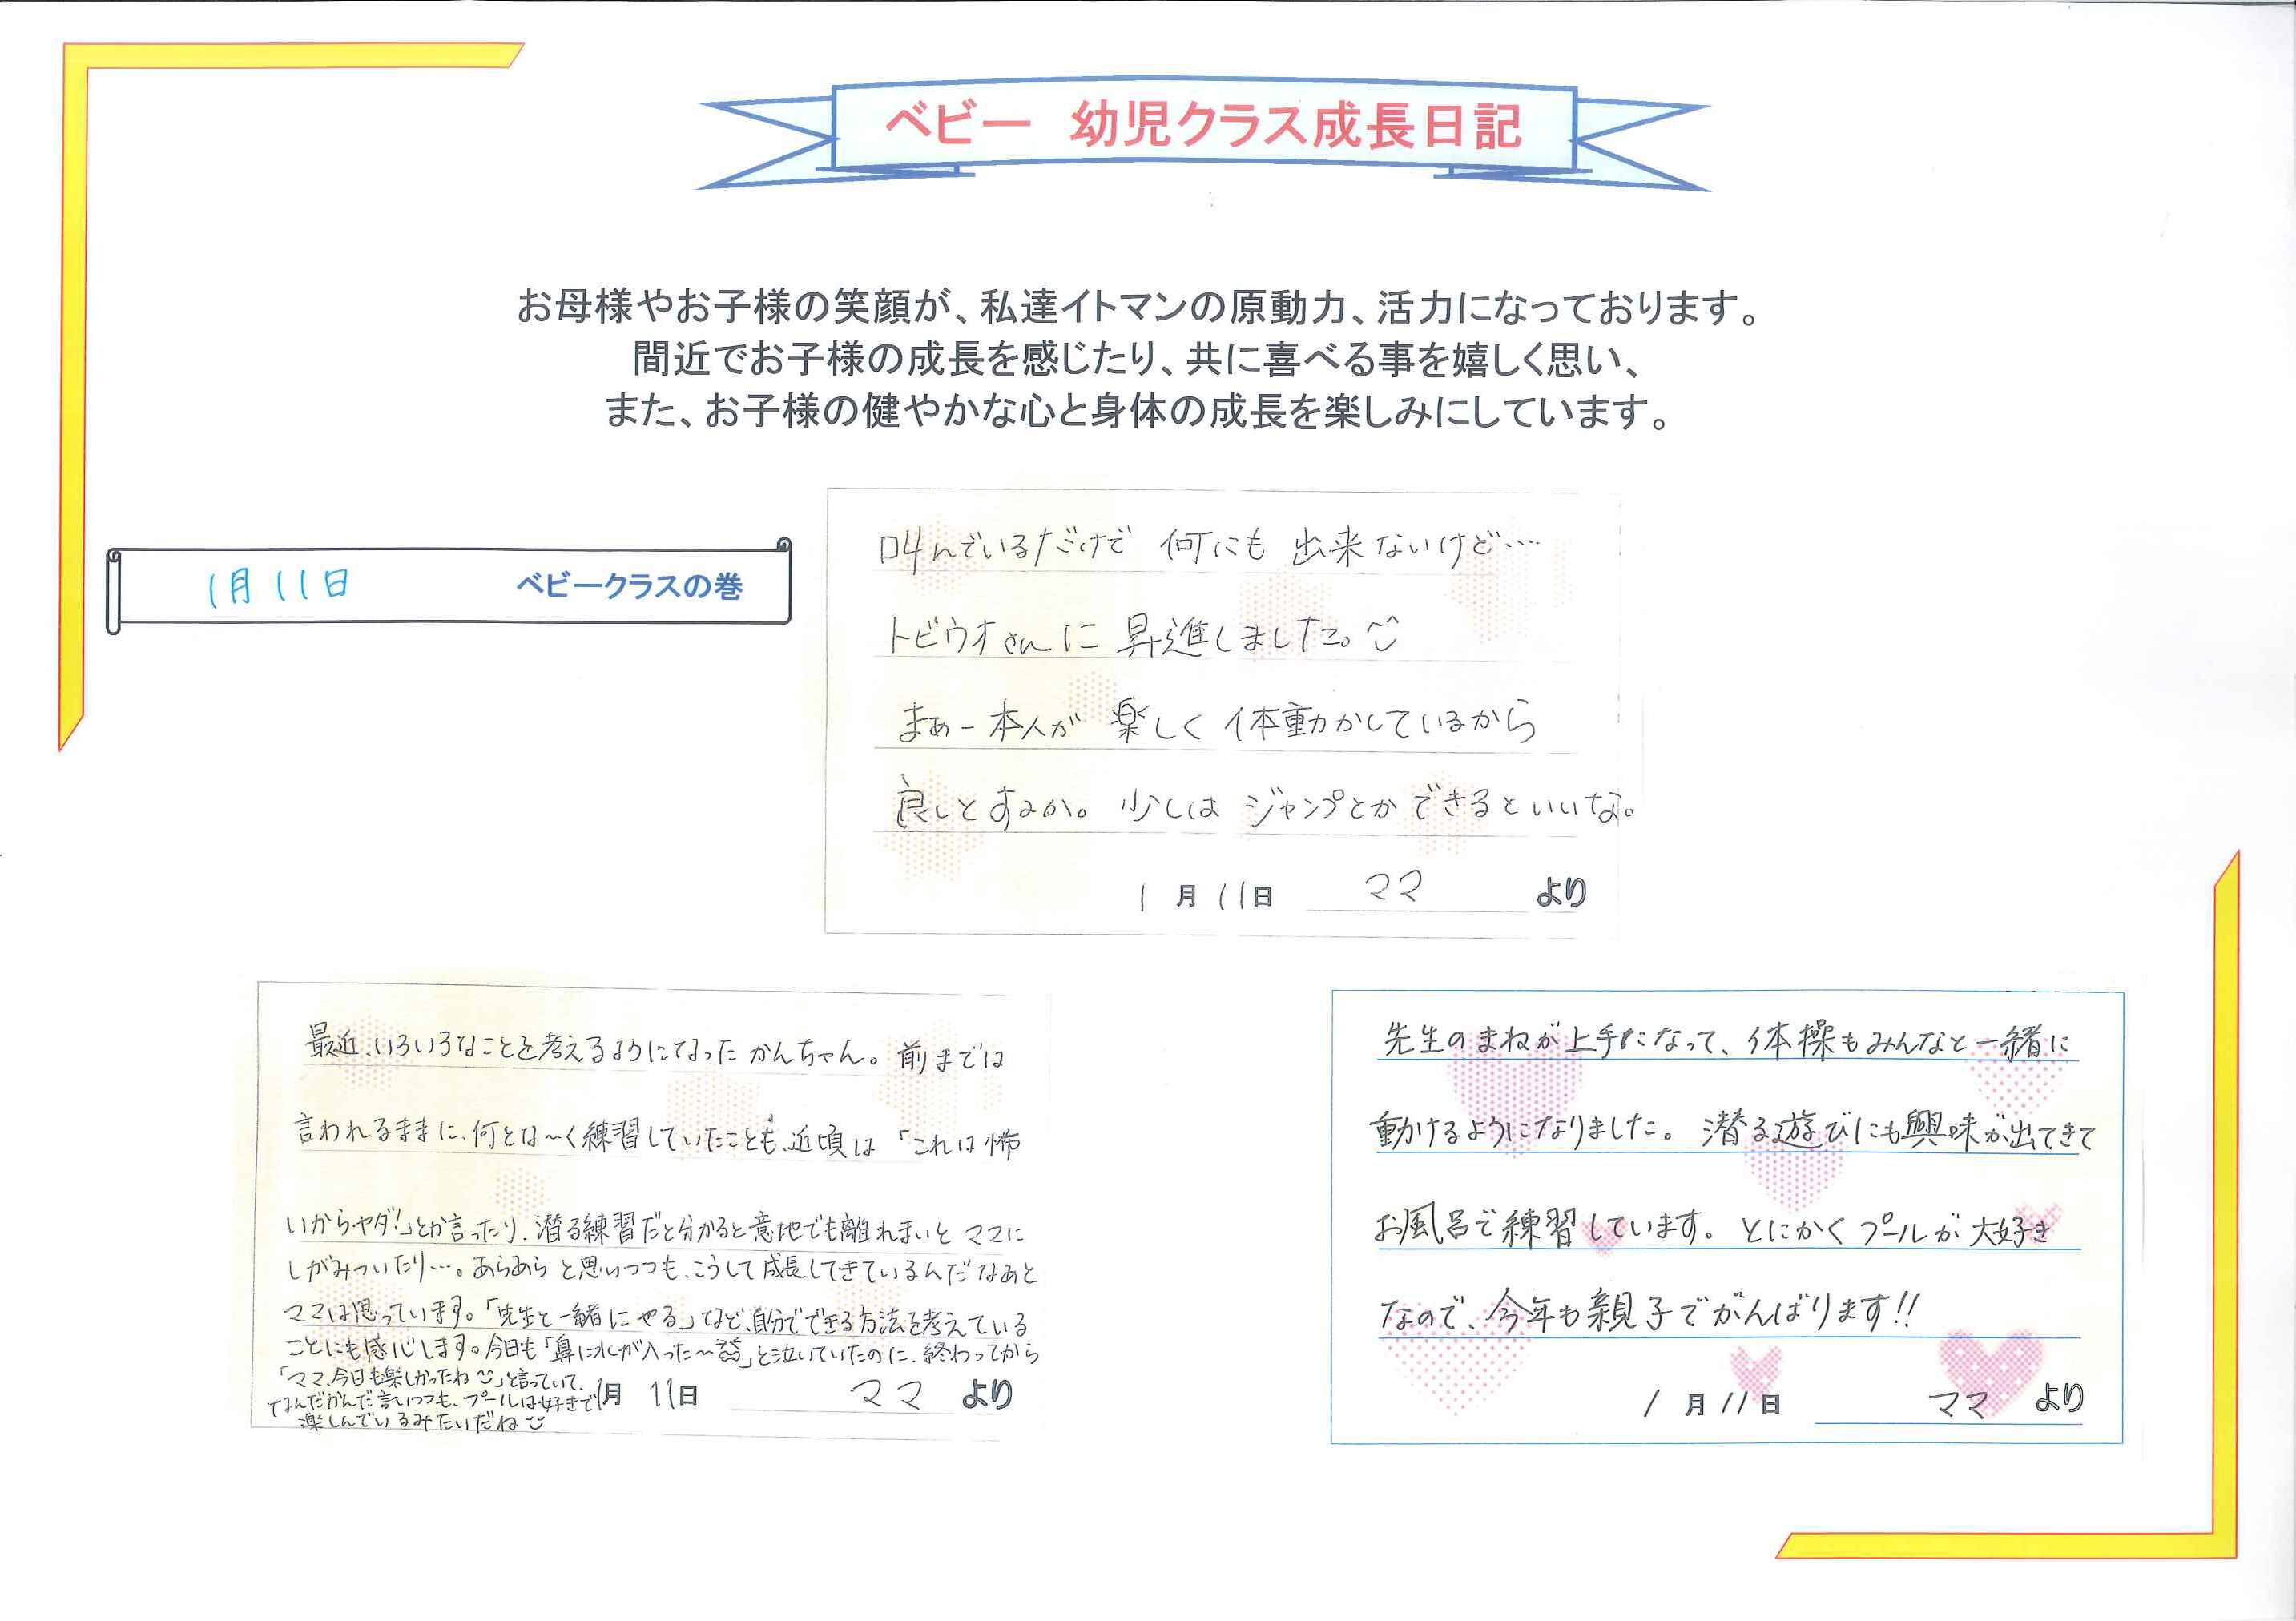 ベビー 幼児クラス成長日記
お母様やお子様の笑顔が、私達イトマンの原動力、活力になっております。
間近でお子様の成長を感じたり、共に喜べる事を嬉しく思い、
また、お子様の健やかな心と身体の成長を楽しみにしています。
1月11日 ベビークラスの巻
叫んでいるだけで 何にも 出来ないけど…
トビウオさんに 昇進しました。
まぁー本人が 楽しく 体動かしているから
良しとするか。少しは ジャンプとか できるといいな。
1月11日 ママ より
最近、いろいろなことを考えるようになった かんちゃん。前までは
言われるままに、何とな〜く練習していたことも、近頃は「これは怖
いからヤダ!」とか言ったり、潜る練習だと分かると意地でも離れまいと ママに
しがみついたり…。あらあら と思いつつも、こうして成長してきているんだなぁと
ママは思っています。「先生と一緒にやる」など、自分でできる方法を考えている
ことにも感じします。今日も「鼻に水が入った〜」と泣いていたのに、終わってから
「ママ、今日も楽しかったね」と言っていて、
なんだかんだ言いつつも、プールは好きで
楽しんでいるみたいだね
1月 11日 ママ より
先生のまねが上手になって、体操もみんなと一緒に
動けるようになりました。潜る遊びにも興味が出てきて
お風呂で練習しています。とにかくプールが大好き
なので、今年も親子でがんばります!!
1月11日 ママ より